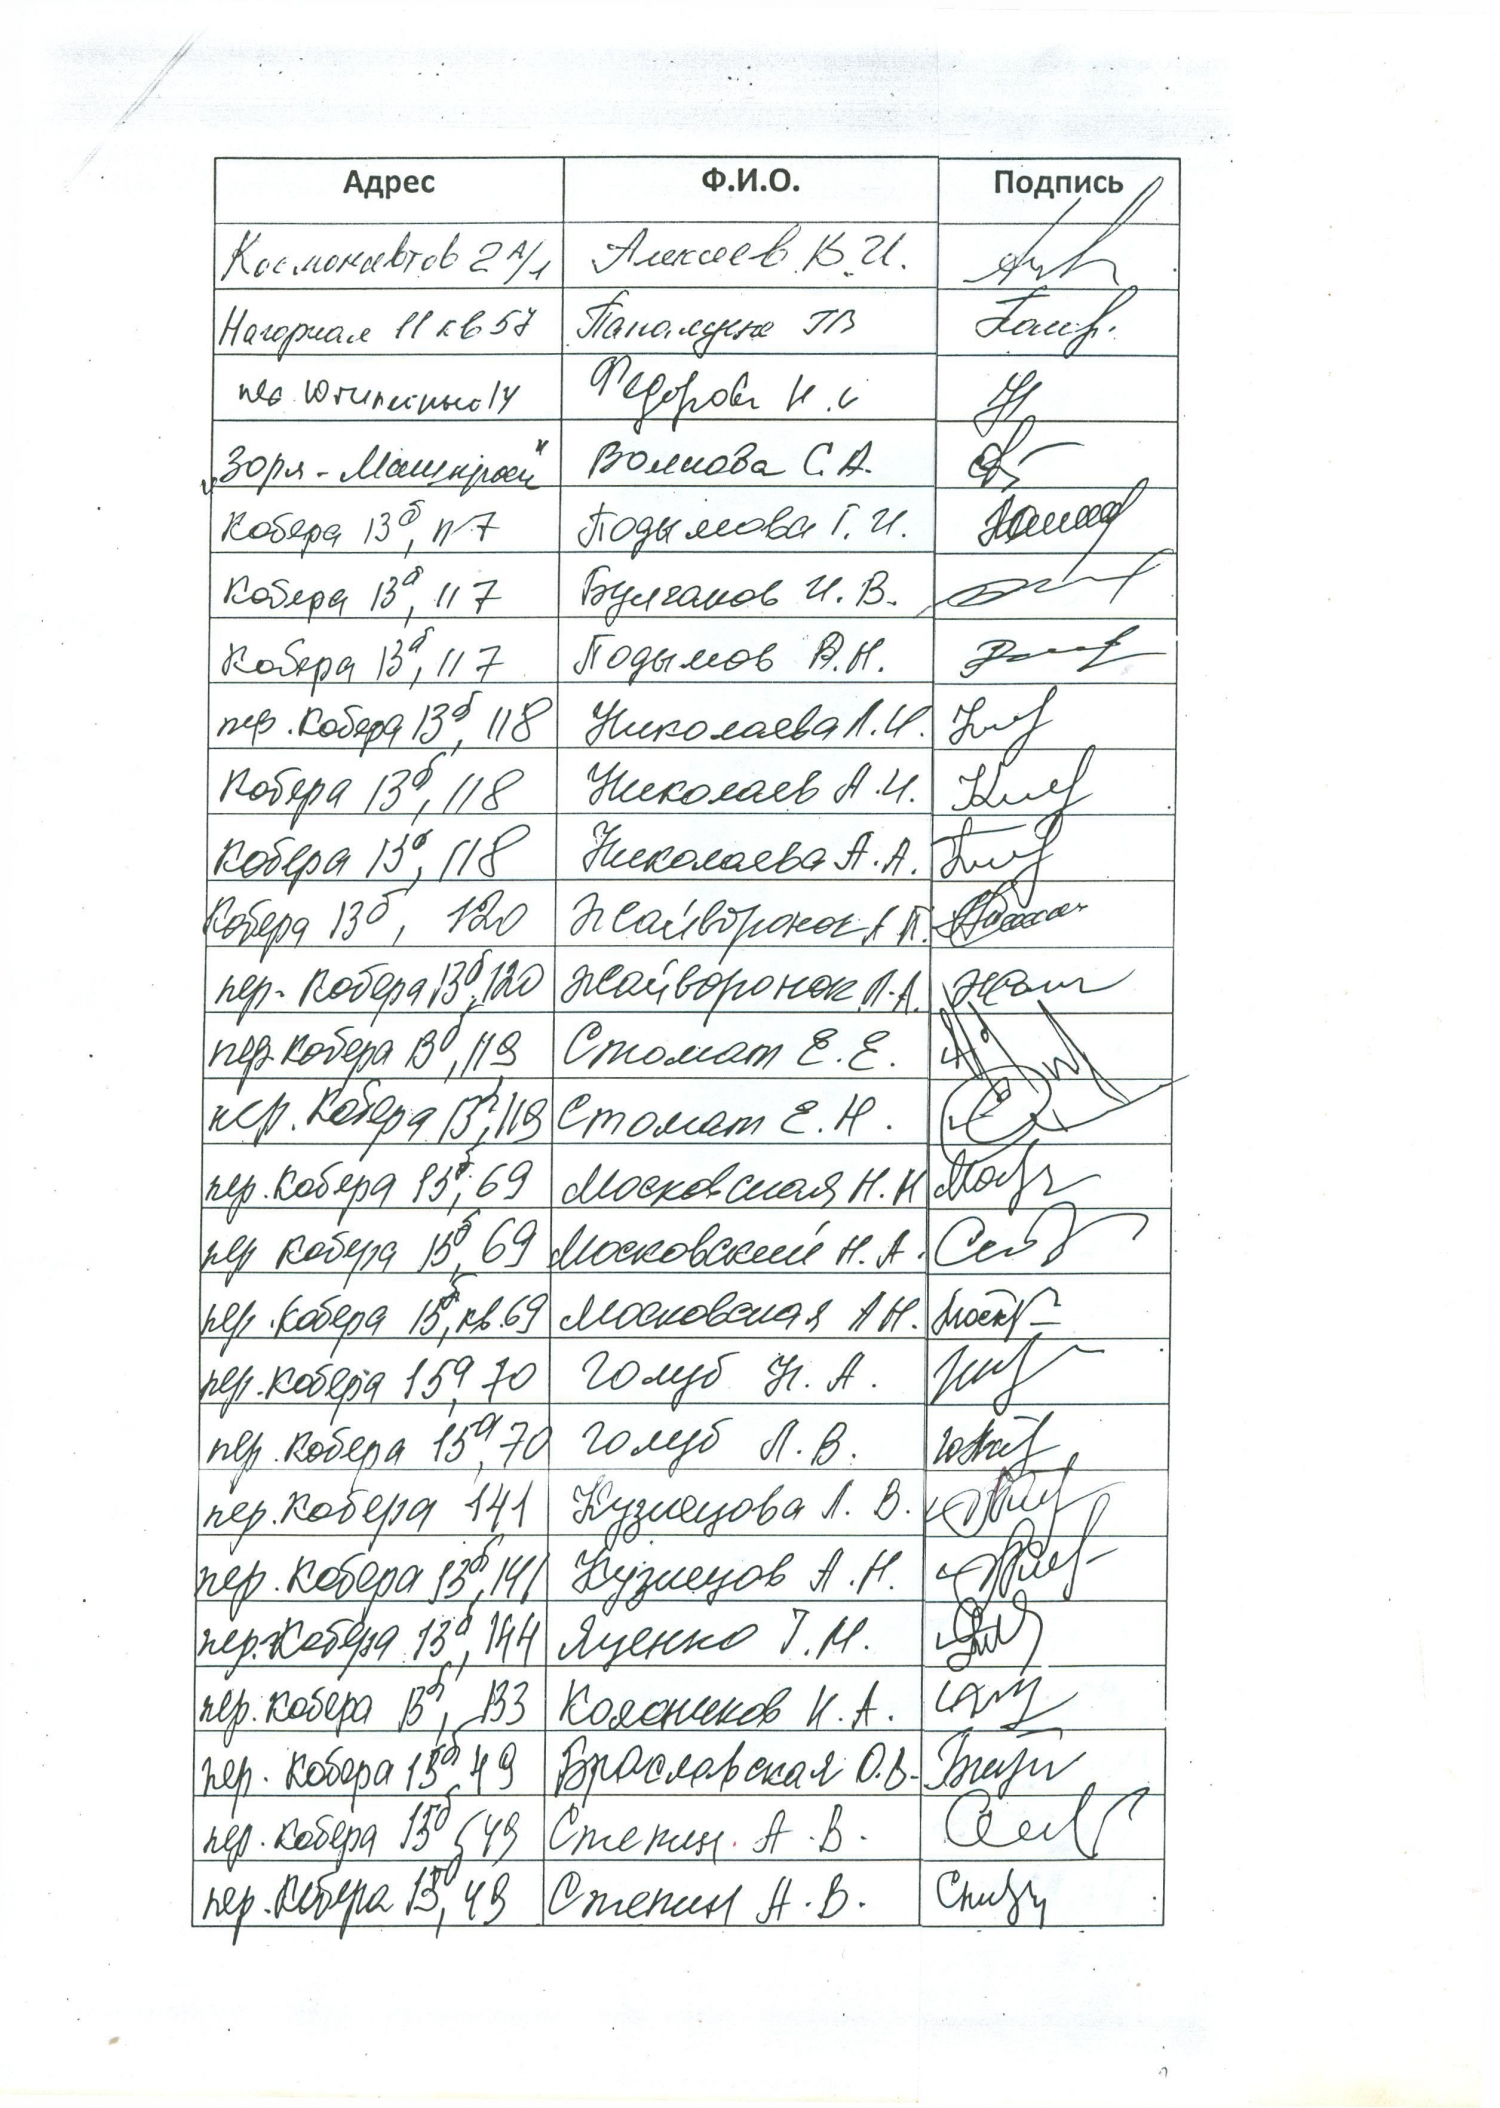 Адрес Ф.И.О. Подпись
Космонавтов 2 А/1 Алексеев В.И.
Нагорная 11 кв 57 ТВ
14 Федорова Н.
"Заря - " Волкова С.А.
Кобера 13б, 117 Подымова Г.И.
Кобера 13б, 117 Булгаков И.В.
Кобера 13б, 117 Подымов В.Н.
пер. Кобера 13б, 118 Николаева Л.И.
Кобера 13б, 118 Николаев А.И.
Кобера 13б, 118 Николаева А.А.
Кобера 13б, 120 Жайворонок А П.
пер. Кобера 13б, 120 Жайворонок Л.А.
пер. Кобера 13б, 119 Стомат Е.Е.
пер. Кобера 13б, 119 Стомат Е.Н.
пер. Кобера 15б, 69 Московская Н.Н
пер Кобера 15б, 69 Московский Н.А.
пер. Кобера 15б, кв.69 Московская А Н.
пер. Кобера 15а, 70 Голуб Н.А.
пер. Кобера 15а, 70 Голуб Л.В.
пер. Кобера 141 Кузнецова Л.В.
пер. Кобера 13б, 141 Кузнецов А.Н.
пер. Кобера 13б, 144 Яценко Т.М.
пер. Кобера 13б, 133 Колесников И.А.
пер. Кобера 15б, 49 Браславская О.В.
пер. Кобера 15б, 49 Степин А.В.
пер. Кобера 15б, 49 Степин А.В.